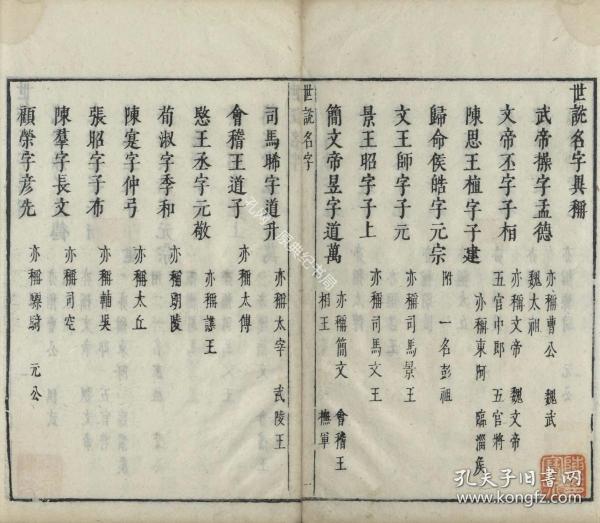 世說名字異稱
武帝操字孟德 亦稱曹公 魏武
魏太祖
文帝丕字子相 亦稱文帝 魏文帝
五官中郎 五官將
陳思王植字子建 亦稱東阿 臨淄侯
歸命侯皓字元宗 附 一名彭祖
文王師字子元 亦稱司馬景王
景王昭字子上 亦稱司馬文王
簡文帝昱字道萬 亦稱簡文 會稽王
相王 撫軍
世說名字
一
司馬晞字道升 亦稱太宰 武陵王
會稽王道子 亦稱太傅
愍王丞字元敬 亦稱譙王
荀淑字季和 亦稱朗陵
陳寔字仲弓 亦稱太丘
張昭字子布 亦稱輔吳
陳羣字長文 亦稱司空
顧榮字彥先 亦稱驃騎 元公
孔夫子旧书网
book.kongfz.com